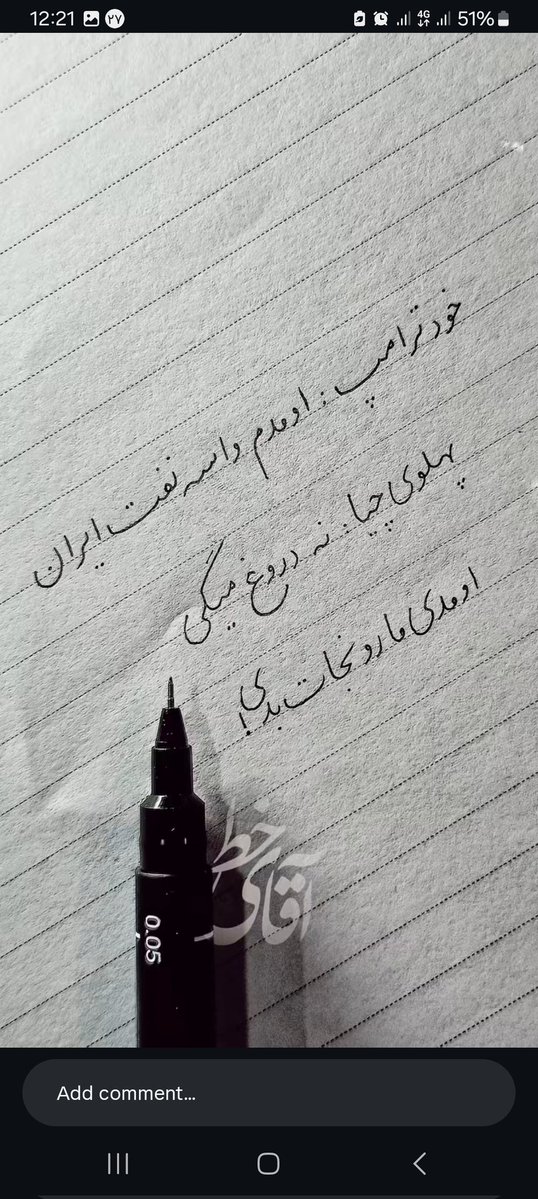 12:21 ۲۷ 4G 51%
خود ترامپ : اومدم واسه نفت ایران
پهلوی چیا : نه دروغ میگی
اومدی ما رو نجات بدی!
آقای خط
0.05
Add comment...